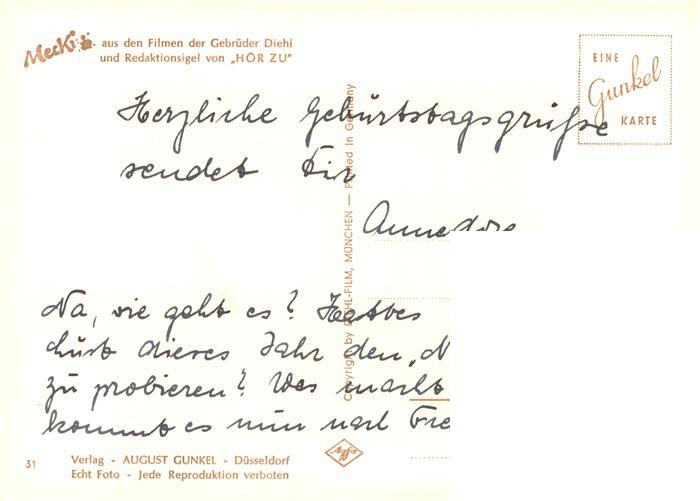 Mecki aus den Filmen der Gebrüder Diehl
und Redaktionsigel von „HÖR ZU"
EINE
Gunkel
KARTE
Herzliche Geburtstagsgrüße
sendet Dir
Annedore
Na, wie geht es?
dieses Jahr den „N
zu probieren? Was macht
kommt es nun nach Fre
Copyright by DIEHL-FILM, MÜNCHEN — Printed in Germany
Agfa
31
Verlag - AUGUST GUNKEL - Düsseldorf
Echt Foto - Jede Reproduktion verboten